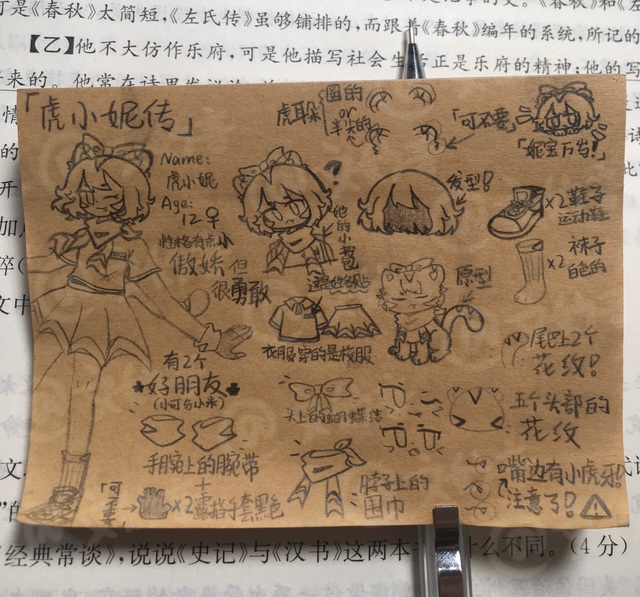 可是《春秋》太简短，《左氏传》虽够铺排的，而跟着《春秋》编年的系统，所记的
【乙】他不大仿作乐府，可是他描写社会生活正是乐府的精神；他的写
「虎小妮传」
Name:
虎小妮
Age:
12♀
性格有点小
傲娇但
很勇敢
虎耳朵
圆的
or
半尖的
「可不要」
「妮宝万岁!」
?
发型!
×2 鞋子
运动鞋
袜子
×2 白色的
原型
衣服穿的是校服
尾巴上2个
花纹!
有2个
好朋友
(小可与小米)
头上的蝴蝶结
五个头部的
花纹
手腕上的腕带
+
×2 露指手套黑色
脖子上的
围巾
嘴边有小虎牙!
注意了!
《经典常谈》，说说《史记》与《汉书》这两本
什么不同。(4 分)